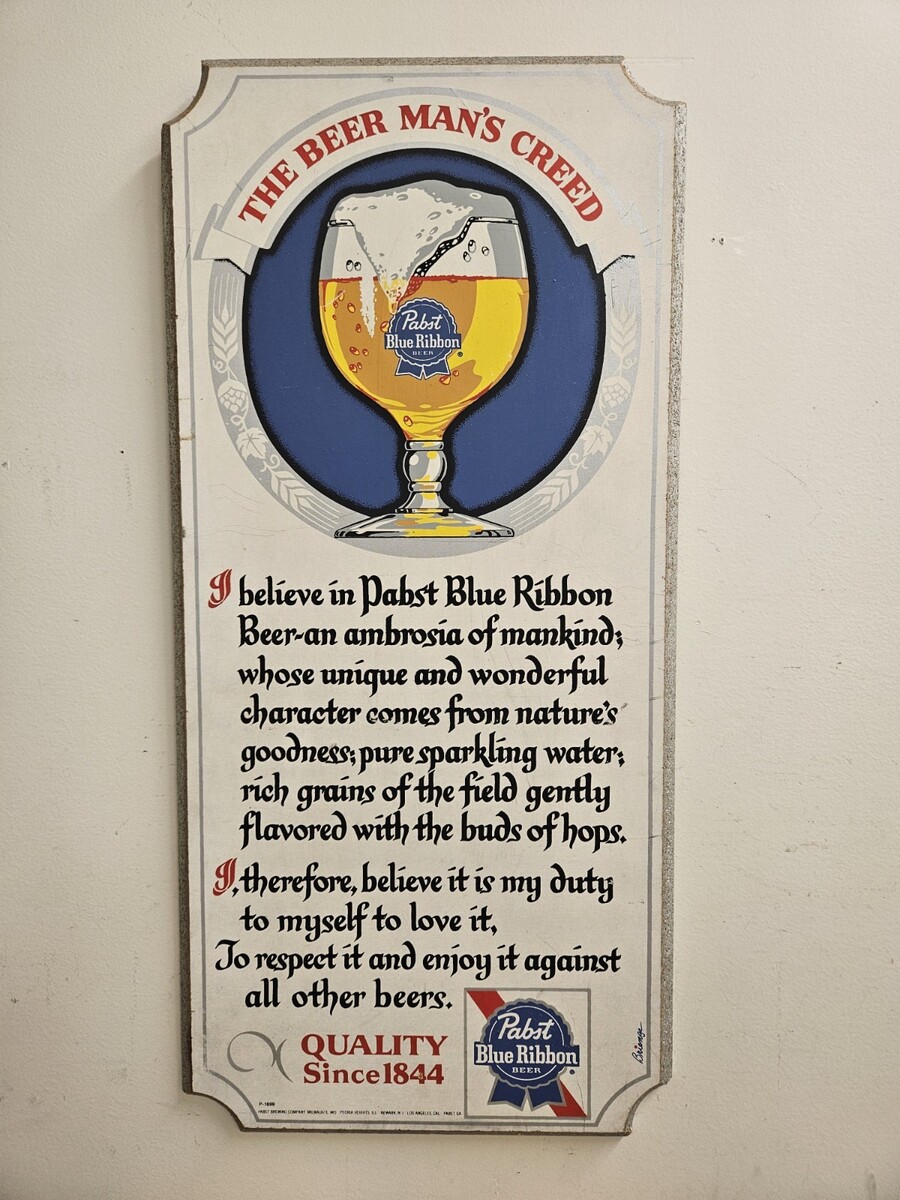 THE BEER MAN'S CREED
Pabst
Blue Ribbon
BEER
®
I believe in Pabst Blue Ribbon
Beer-an ambrosia of mankind;
whose unique and wonderful
character comes from nature's
goodness; pure sparkling water;
rich grains of the field gently
flavored with the buds of hops.
I, therefore, believe it is my duty
to myself to love it,
To respect it and enjoy it against
all other beers.
QUALITY
Since 1844
Pabst
Blue Ribbon
BEER
®
P-1699
PABST BREWING COMPANY MILWAUKEE, WIS. PEORIA HEIGHTS, ILL. NEWARK, N.J. LOS ANGELES, CAL. PABST GA.